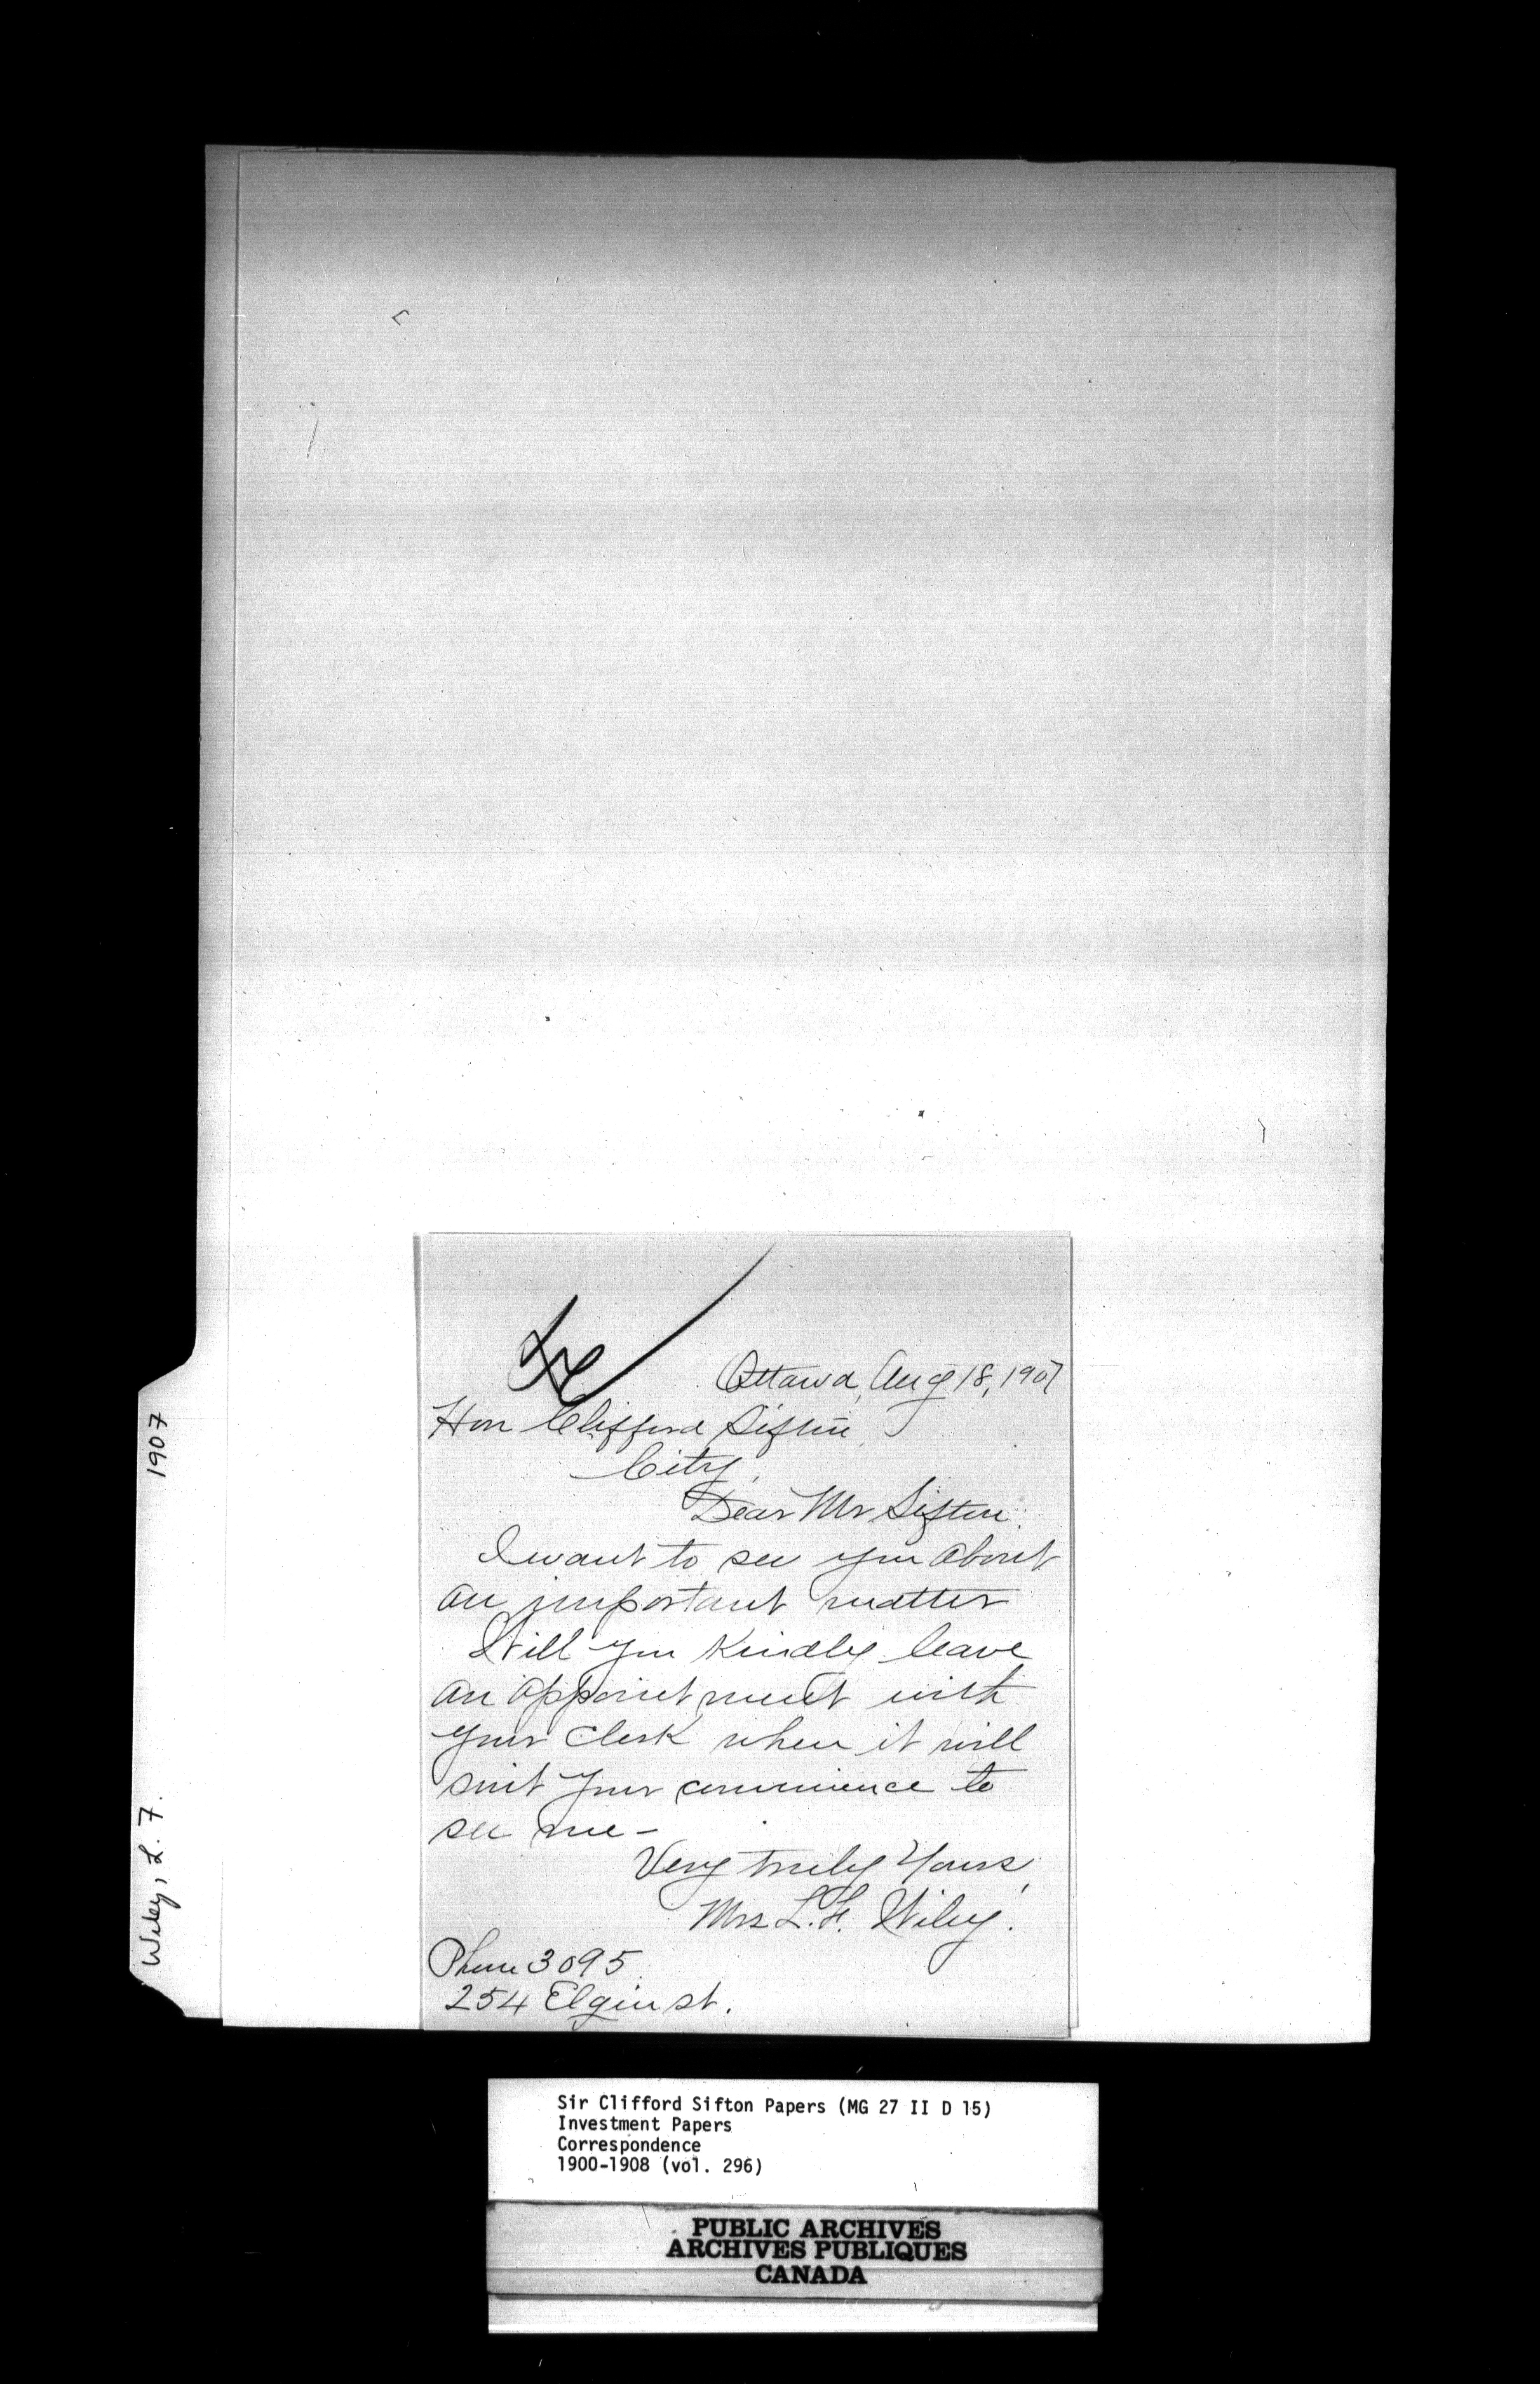 Ottawa, Aug 18, 1907
Hon Clifford Sifton,
City,
Dear Mr Sifton:
I want to see you about
an important matter
Will you kindly leave
an appointment with
your clerk when it will
suit your convenience to
see me-
Very truly yours,
Mrs L. F. Wiley.
Phone 3095
254 Elgin st.
Wiley, L. F. 1907
Sir Clifford Sifton Papers (MG 27 II D 15)
Investment Papers
Correspondence
1900-1908 (vol. 296)
PUBLIC ARCHIVES
ARCHIVES PUBLIQUES
CANADA